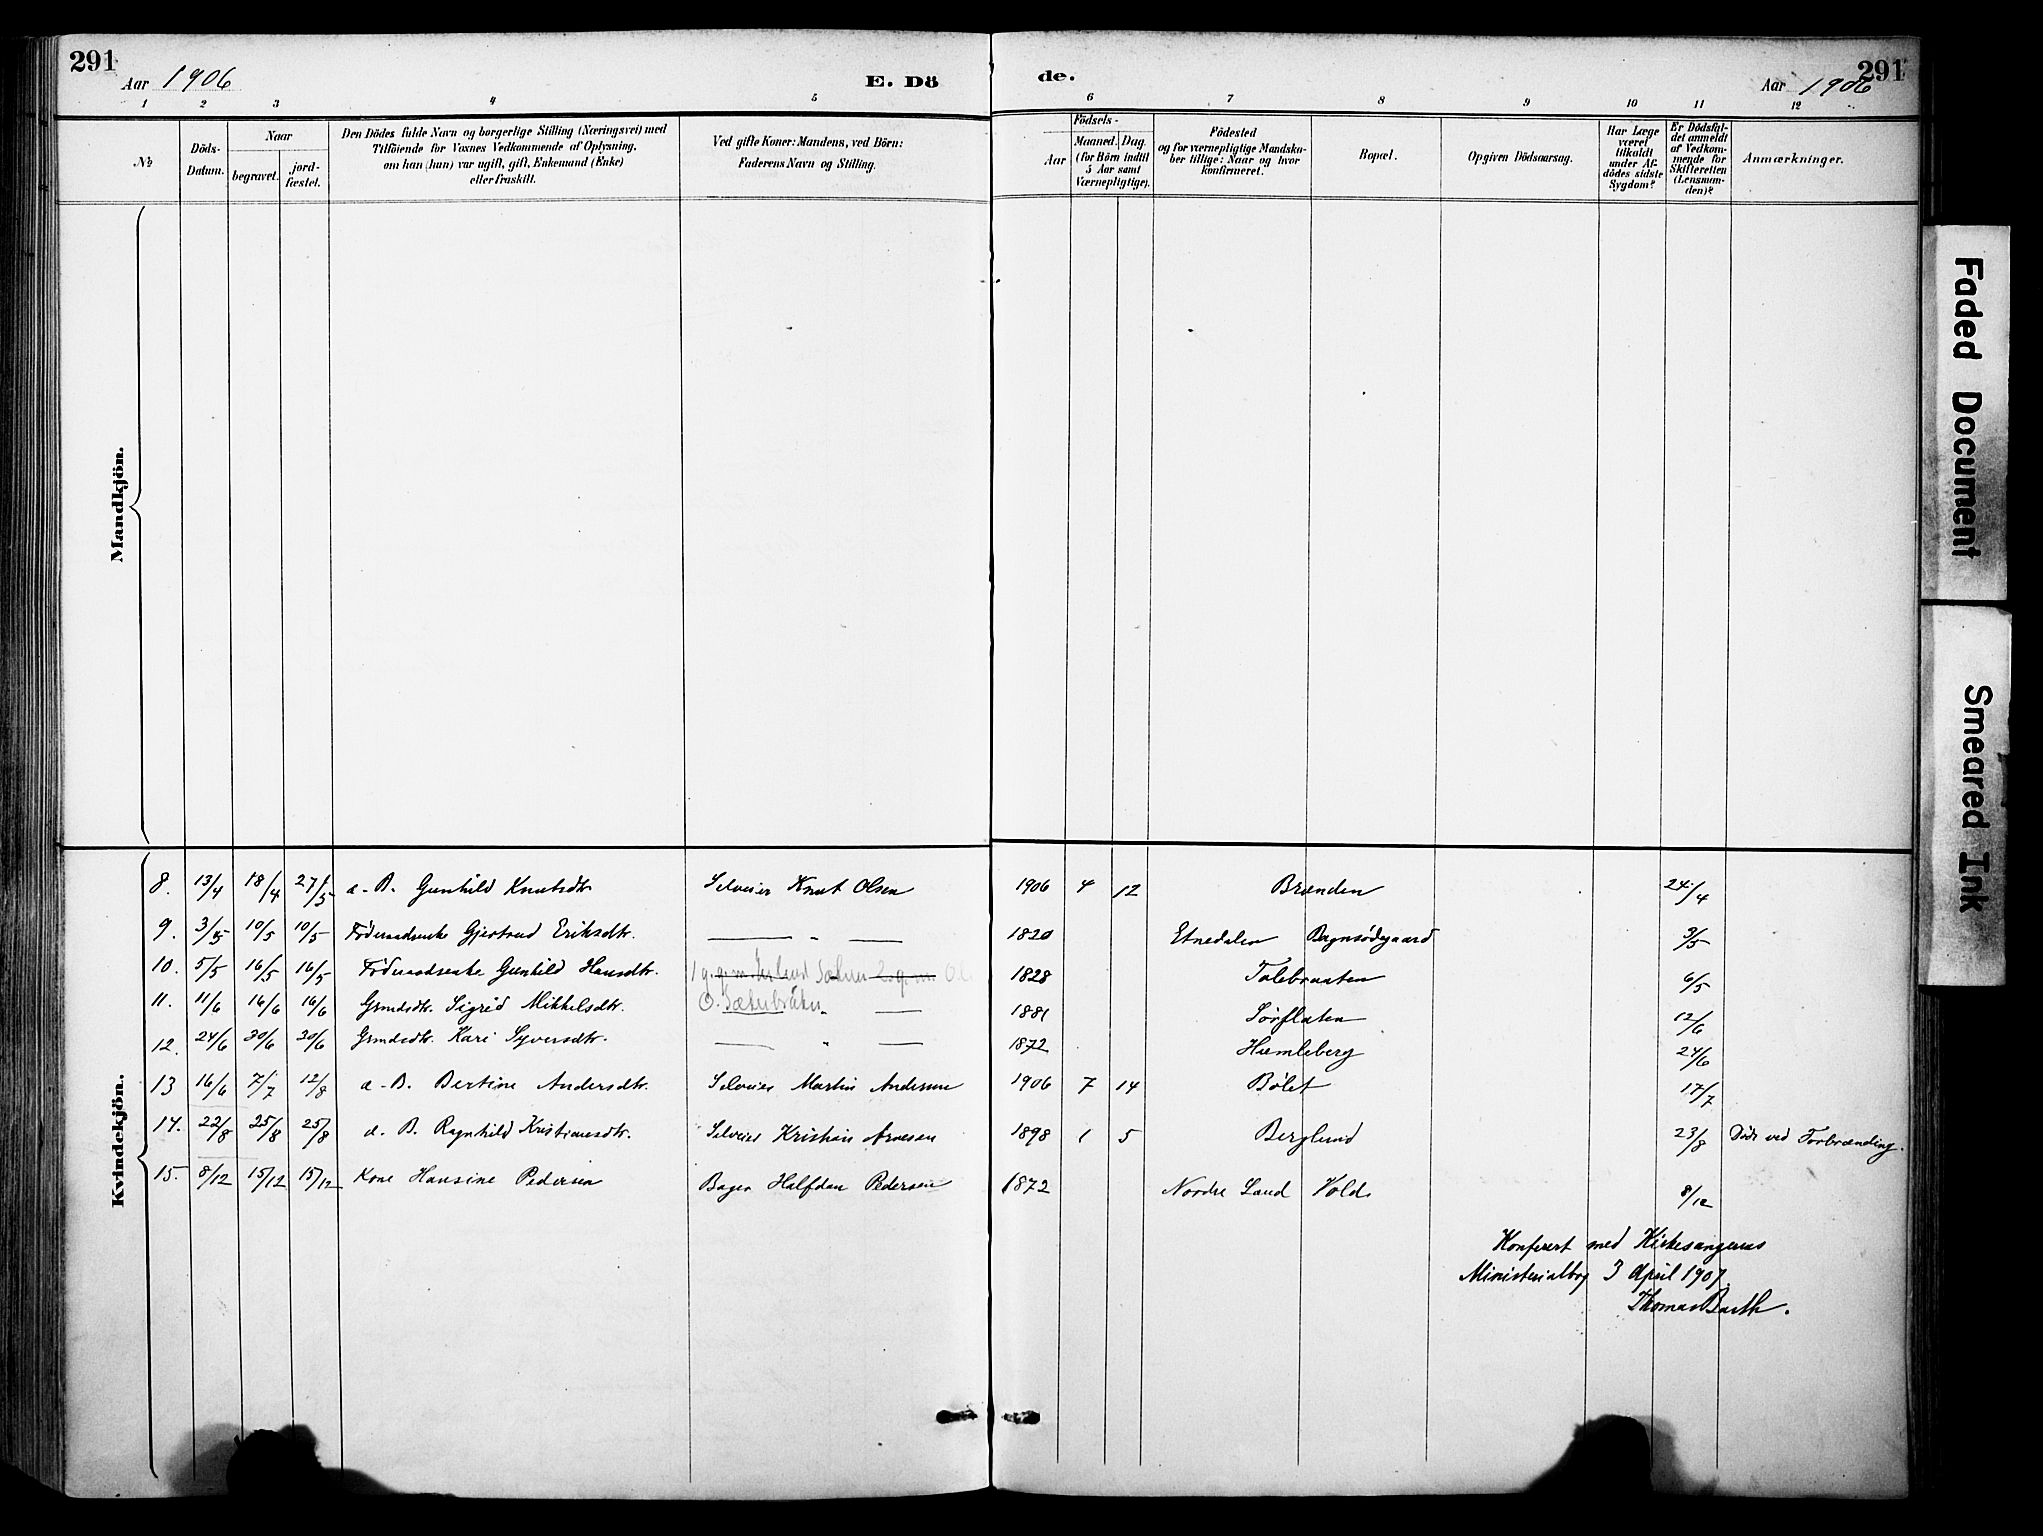 291
Aar 1906
E. Dö
de.
Aar 1906
291
1 2 3 4 5 6 7 8 9 10 11 12
No
Döds-
Datum.
Naar
begravet.
jord-
fæstet.
Den Dödes fulde Navn og borgerlige Stilling (Næringsvei) med
Tilföiende for Voxnes Vedkommende af Oplysning,
om han (hun) var ugift, gift, Enkemand (Enke)
eller fraskilt.
Ved gifte Koner: Mandens, ved Börn:
Faderens Navn og Stilling.
Födsels-
Aar
Maaned. Dag.
(for Börn indtil
5 Aar samt
Værnepligtige).
Födested
og for værnepligtige Mandska-
ber tillige: Naar og hvor
konfirmeret.
Bopæl.
Opgiven Dödsaarsag.
Har Læge
været
tilkaldt
under Af-
dödes sidste
Sygdom?
Er Dödsfal-
det anmeldt
af Vedkom-
mende for
Skifteretten
(Lensman-
den)?
Anmærkninger.
Mandkjön.
Kvindekjön.
8. 13/4 18/4 27/5 e. B. Gunhild Knutsdtr. Selveier Knut Olsen 1906 4 12 Brænden 24/4
9. 3/5 10/5 10/5 Föderaadsenke Gjertrud Eriksdtr. — " — 1820 Etnedalen Bagnsødegaard 3/5
10. 5/5 16/5 16/5 Föderaadsenke Gunhild Hansdtr. 1 g. g. m. 1828 Tolebraaten 6/5
11. 11/6 16/6 16/6 Grmdsdtr. Sigrid Mikkelsdtr. " — 1881 Sørflaten 12/6
12. 24/6 30/6 30/6 Grmdsdtr. Kari Syversdtr. — " — 1872 Humleberg 24/6
13 16/6 7/7 12/8 e. B. Bertine Andersdtr. Selveier Martin Andersen 1906 7 14 Bølet 17/7
14. 22/8 25/8 25/8 e. B. Ragnhild Kristiansdtr. Selveier Kristian Arnesen 1898 1 5 Berglund 23/8 Död ved Forbrænding.
15. 8/12 15/12 15/12 Kone Hansine Pedersen Bager Halfdan Pedersen 1872 Nordre Land Vold 8/12
Konferert med Kirkesangerens
Ministerialbog 3 April 1907.
Thomas Barth.
Faded Document
Smeared Ink